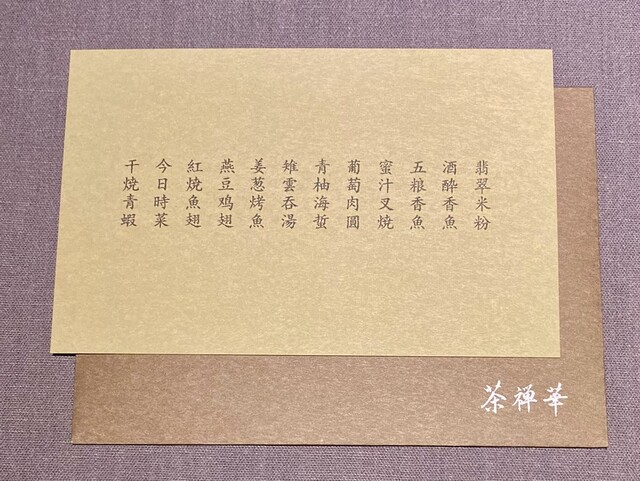 翡翠米粉
酒酔香魚
五粮香魚
蜜汁叉焼
葡萄肉圓
青柚海蜇
雉雲吞湯
姜葱烤魚
燕豆鸡翅
紅焼魚翅
今日時菜
干焼青蝦
茶禅華